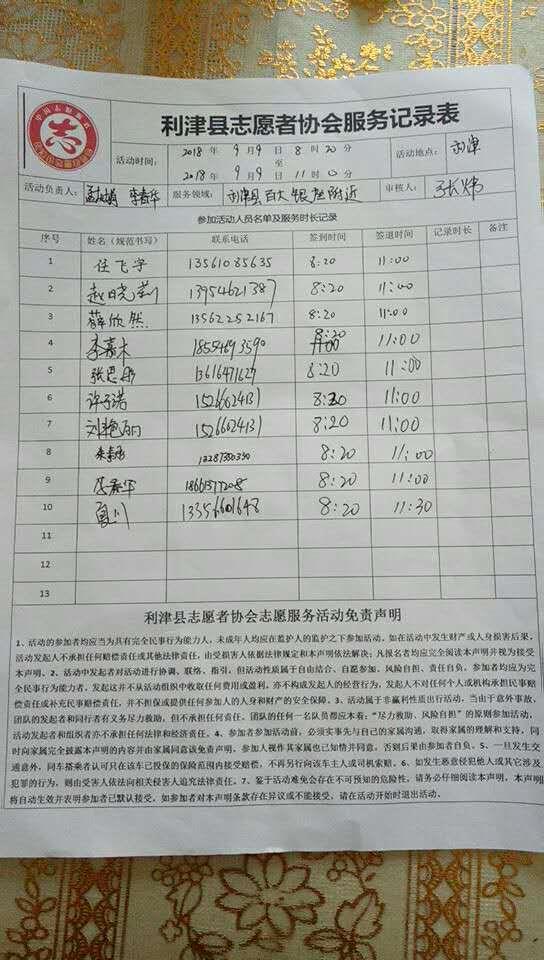 利津县志愿者协会服务记录表
活动时间： 2018 年 9 月 9 日 8 时 20 分 活动地点： 利津
至
2018 年 9 月 9 日 11 时 0 分
活动负责人： 李春华 服务领域： 利津县百大银座附近 审核人： 张炜
参加活动人员名单及服务时长记录
序号 姓名（规范书写） 联系电话 签到时间 签退时间 记录时长 备注
1 任飞宇 13561085635 8:20 11:00
2 赵晓莉 13954621387 8:20 11:00
3 薛欣然 13562252167 8:20 11:00
4 李嘉木 18554693590 8:20 11:00
5 13616471627 8:20 11:00
6 许子诺 15266624131 8:20 11:00
7 刘艳丽 15266624131 8:20 11:00
8 8:20 11:00
9 18661377208 8:20 11:00
10 夏川 13356601648 8:20 11:30
11
12
13
利津县志愿者协会志愿服务活动免责声明
1、活动的参加者均应当为具有完全民事行为能力人，未成年人均应在监护人的监护之下参加活动。如在活动中发生财产或人身损害后果，
活动发起人不承担任何赔偿责任或其他法律责任，由受损害人依据法律规定和本声明依法解决；凡报名者均应完全阅读本声明并视为接受
本声明。2、活动中发起者对活动进行协调、联络、指引，但活动性质属于自由结合、自愿参加、风险自担、责任自负。参加者均应为完
全民事行为能力者，发起这并不从活动组织中收取任何费用或盈利，亦不构成发起人的经营行为，发起人不对任何个人或机构承担民事赔
偿责任或补充民事赔偿责任，并不担保或提供任何参加人的人身和财产的安全保障。3、活动属于非赢利性质出行活动，当由于意外事故，
团队的发起者和同行者有义务尽力救助，但不承担任何责任。团队的任何一名队员都应本着：“尽力救助、风险自担”的原则参加活动，
活动发起者和组织者亦不承担任何法律和经济责任。4、参加者参加活动前，必须实事先与自己的家属沟通，取得家属的理解和支持，同
时向家属完全披露本声明的内容并由家属同意该免责声明，参加人视作其家属也已知情并同意，否则后果由参加者自负。5、一旦发生交
通意外，同车搭乘者认可只在该车已投保的保险范围内接受赔偿，不再另行向该车主人或司机索赔。6、如发生恶意侵犯他人或其它涉及
犯罪的行为，则由受害人依法向相关侵害人追究法律责任。7、鉴于活动难免会存在不可预知的危险性，请务必仔细阅读本声明，本声明
将自动生效并表明参加者已默认接受。如参加者对本声明条款存在异议或不能接受，请在活动开始时退出活动。